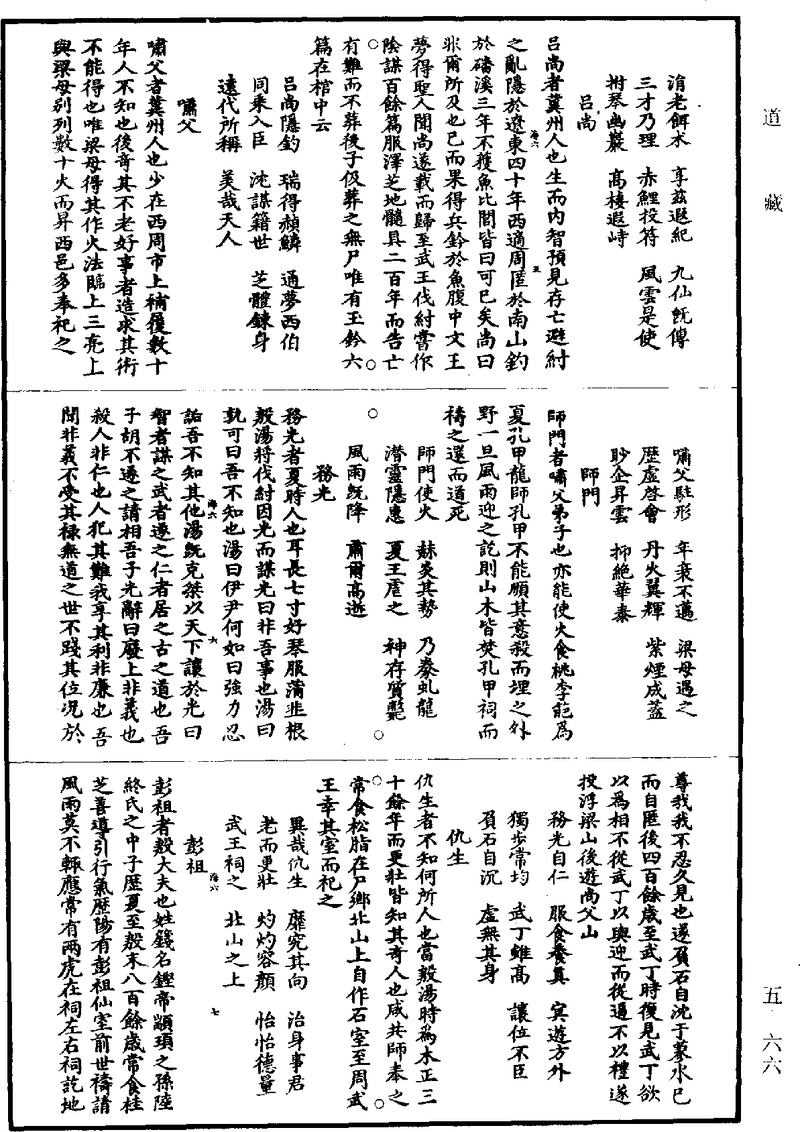 道藏
五·六六
涓老餌朮　享茲遐紀　九仙既傳
三才乃理　赤鯉投符　風雲是使
拊琴幽巖　高棲遐峙
呂尚
呂尚者冀州人也生而內智預見存亡避紂
之亂隱於遼東四十年西適周匿於南山釣
於磻溪三年不獲魚比閭皆曰可已矣尚曰
非爾所及也已而果得兵鈐於魚腹中文王
夢得聖人聞尚遂載而歸至武王伐紂嘗作
陰謀百餘篇服澤芝地髓具二百年而告亡
有難而不葬後子伋葬之無尸唯有玉鈐六
篇在棺中云
呂尚隱釣　瑞得赬鱗　通夢西伯
同乘入臣　沈謀籍世　芝體鍊身
遠代所稱　美哉天人
嘯父
嘯父者冀州人也少在西周市上補履數十
年人不知也後奇其不老好事者造求其術
不能得也唯梁母得其作火法臨上三亮上
與梁母別列數十火而昇西邑多奉祀之
嘯父駐形　年衰不邁　梁母遇之
歷虛啓會　丹火翼輝　紫煙成蓋
眇企昇雲　抑絕華泰
師門
師門者嘯父弟子也亦能使火食桃李葩為
夏孔甲龍師孔甲不能願其意殺而埋之外
野一旦風雨迎之訖則山木皆焚孔甲祠而
禱之還而道死
師門使火　赫炎其勢　乃豢虬龍
潛靈隱惠　夏王虐之　神存質斃
風雨既降　肅爾高逝
務光
務光者夏時人也耳長七寸好琴服蒲韭根
殷湯將伐紂因光而謀光曰非吾事也湯曰
孰可曰吾不知也湯曰伊尹何如曰強力忍
詬吾不知其他湯既克桀以天下讓於光曰
智者謀之武者遂之仁者居之古之道也吾
子胡不遂之請相吾子光辭曰廢上非義也
殺人非仁也人犯其難我享其利非廉也吾
聞非義不受其祿無道之世不踐其位況於
尊我我不忍久見也遂負石自沈于蓼水已
而自匿後四百餘歲至武丁時復見武丁欲
以為相不從武丁以輿迎而從逼不以禮遂
投浮梁山後遊尚父山
務光自仁　服食養真　冥遊方外
獨步常均　武丁雖高　讓位不臣
負石自沉　虛無其身
仇生
仇生者不知何所人也當殷湯時為木正三
十餘年而更壯皆知其奇人也咸共師奉之
常食松脂在尸鄉北山上自作石室至周武
王幸其室而祀之
異哉仇生　靡究其向　治身事君
老而更壯　灼灼容顏　怡怡德量
武王祠之　北山之上
彭祖
彭祖者殷大夫也姓籛名鏗帝顓頊之孫陸
終氏之中子歷夏至殷末八百餘歲常食桂
芝善導引行氣歷陽有彭祖仙室前世禱請
風雨莫不輒應常有兩虎在祠左右祠訖地